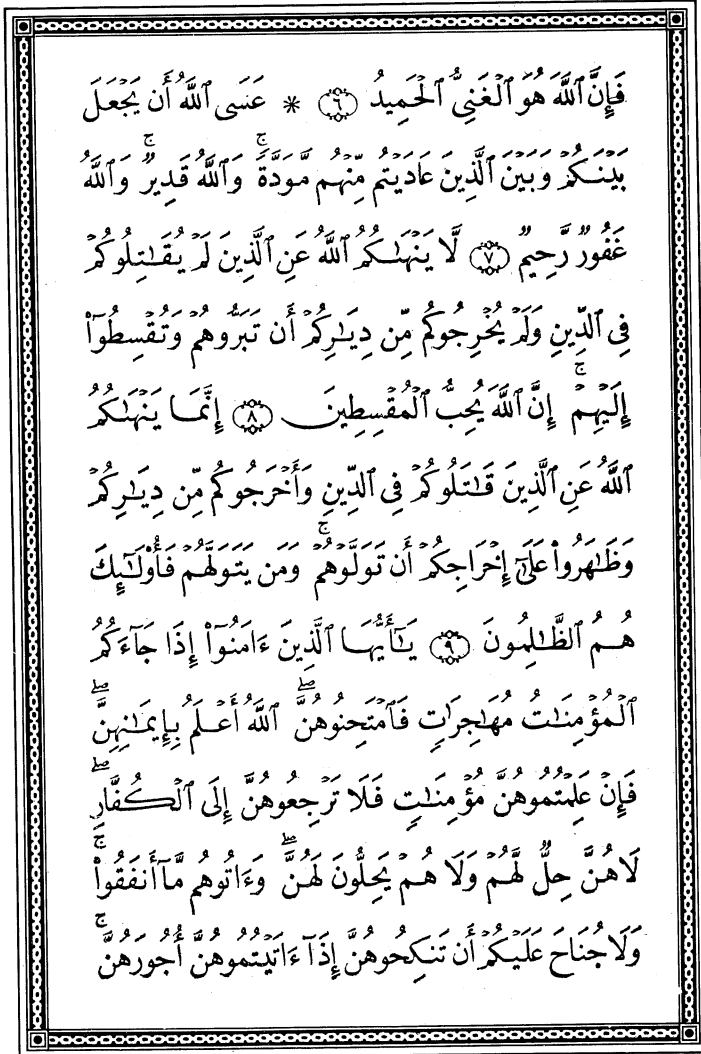 فَإِنَّ ٱللَّهَ هُوَ ٱلْغَنِىُّ ٱلْحَمِيدُ ۝٦ * عَسَى ٱللَّهُ أَن يَجْعَلَ
بَيْنَكُمْ وَبَيْنَ ٱلَّذِينَ عَادَيْتُم مِّنْهُم مَّوَدَّةًۚ وَٱللَّهُ قَدِيرٌۚ وَٱللَّهُ
غَفُورٌ رَّحِيمٌ ۝٧ لَّا يَنْهَىٰكُمُ ٱللَّهُ عَنِ ٱلَّذِينَ لَمْ يُقَـٰتِلُوكُمْ
فِى ٱلدِّينِ وَلَمْ يُخْرِجُوكُم مِّن دِيَـٰرِكُمْ أَن تَبَرُّوهُمْ وَتُقْسِطُوٓا۟
إِلَيْهِمْۚ إِنَّ ٱللَّهَ يُحِبُّ ٱلْمُقْسِطِينَ ۝٨ إِنَّمَا يَنْهَىٰكُمُ
ٱللَّهُ عَنِ ٱلَّذِينَ قَـٰتَلُوكُمْ فِى ٱلدِّينِ وَأَخْرَجُوكُم مِّن دِيَـٰرِكُمْ
وَظَـٰهَرُوا۟ عَلَىٰٓ إِخْرَاجِكُمْ أَن تَوَلَّوْهُمْۚ وَمَن يَتَوَلَّهُمْ فَأُو۟لَـٰٓئِكَ
هُمُ ٱلظَّـٰلِمُونَ ۝٩ يَـٰٓأَيُّهَا ٱلَّذِينَ ءَامَنُوٓا۟ إِذَا جَآءَكُمُ
ٱلْمُؤْمِنَـٰتُ مُهَـٰجِرَٰتٍ فَٱمْتَحِنُوهُنَّۖ ٱللَّهُ أَعْلَمُ بِإِيمَـٰنِهِنَّۖ
فَإِنْ عَلِمْتُمُوهُنَّ مُؤْمِنَـٰتٍ فَلَا تَرْجِعُوهُنَّ إِلَى ٱلْكُفَّارِۖ
لَا هُنَّ حِلٌّ لَّهُمْ وَلَا هُمْ يَحِلُّونَ لَهُنَّۖ وَءَاتُوهُم مَّآ أَنفَقُوا۟ۚ
وَلَا جُنَاحَ عَلَيْكُمْ أَن تَنكِحُوهُنَّ إِذَآ ءَاتَيْتُمُوهُنَّ أُجُورَهُنَّۚ